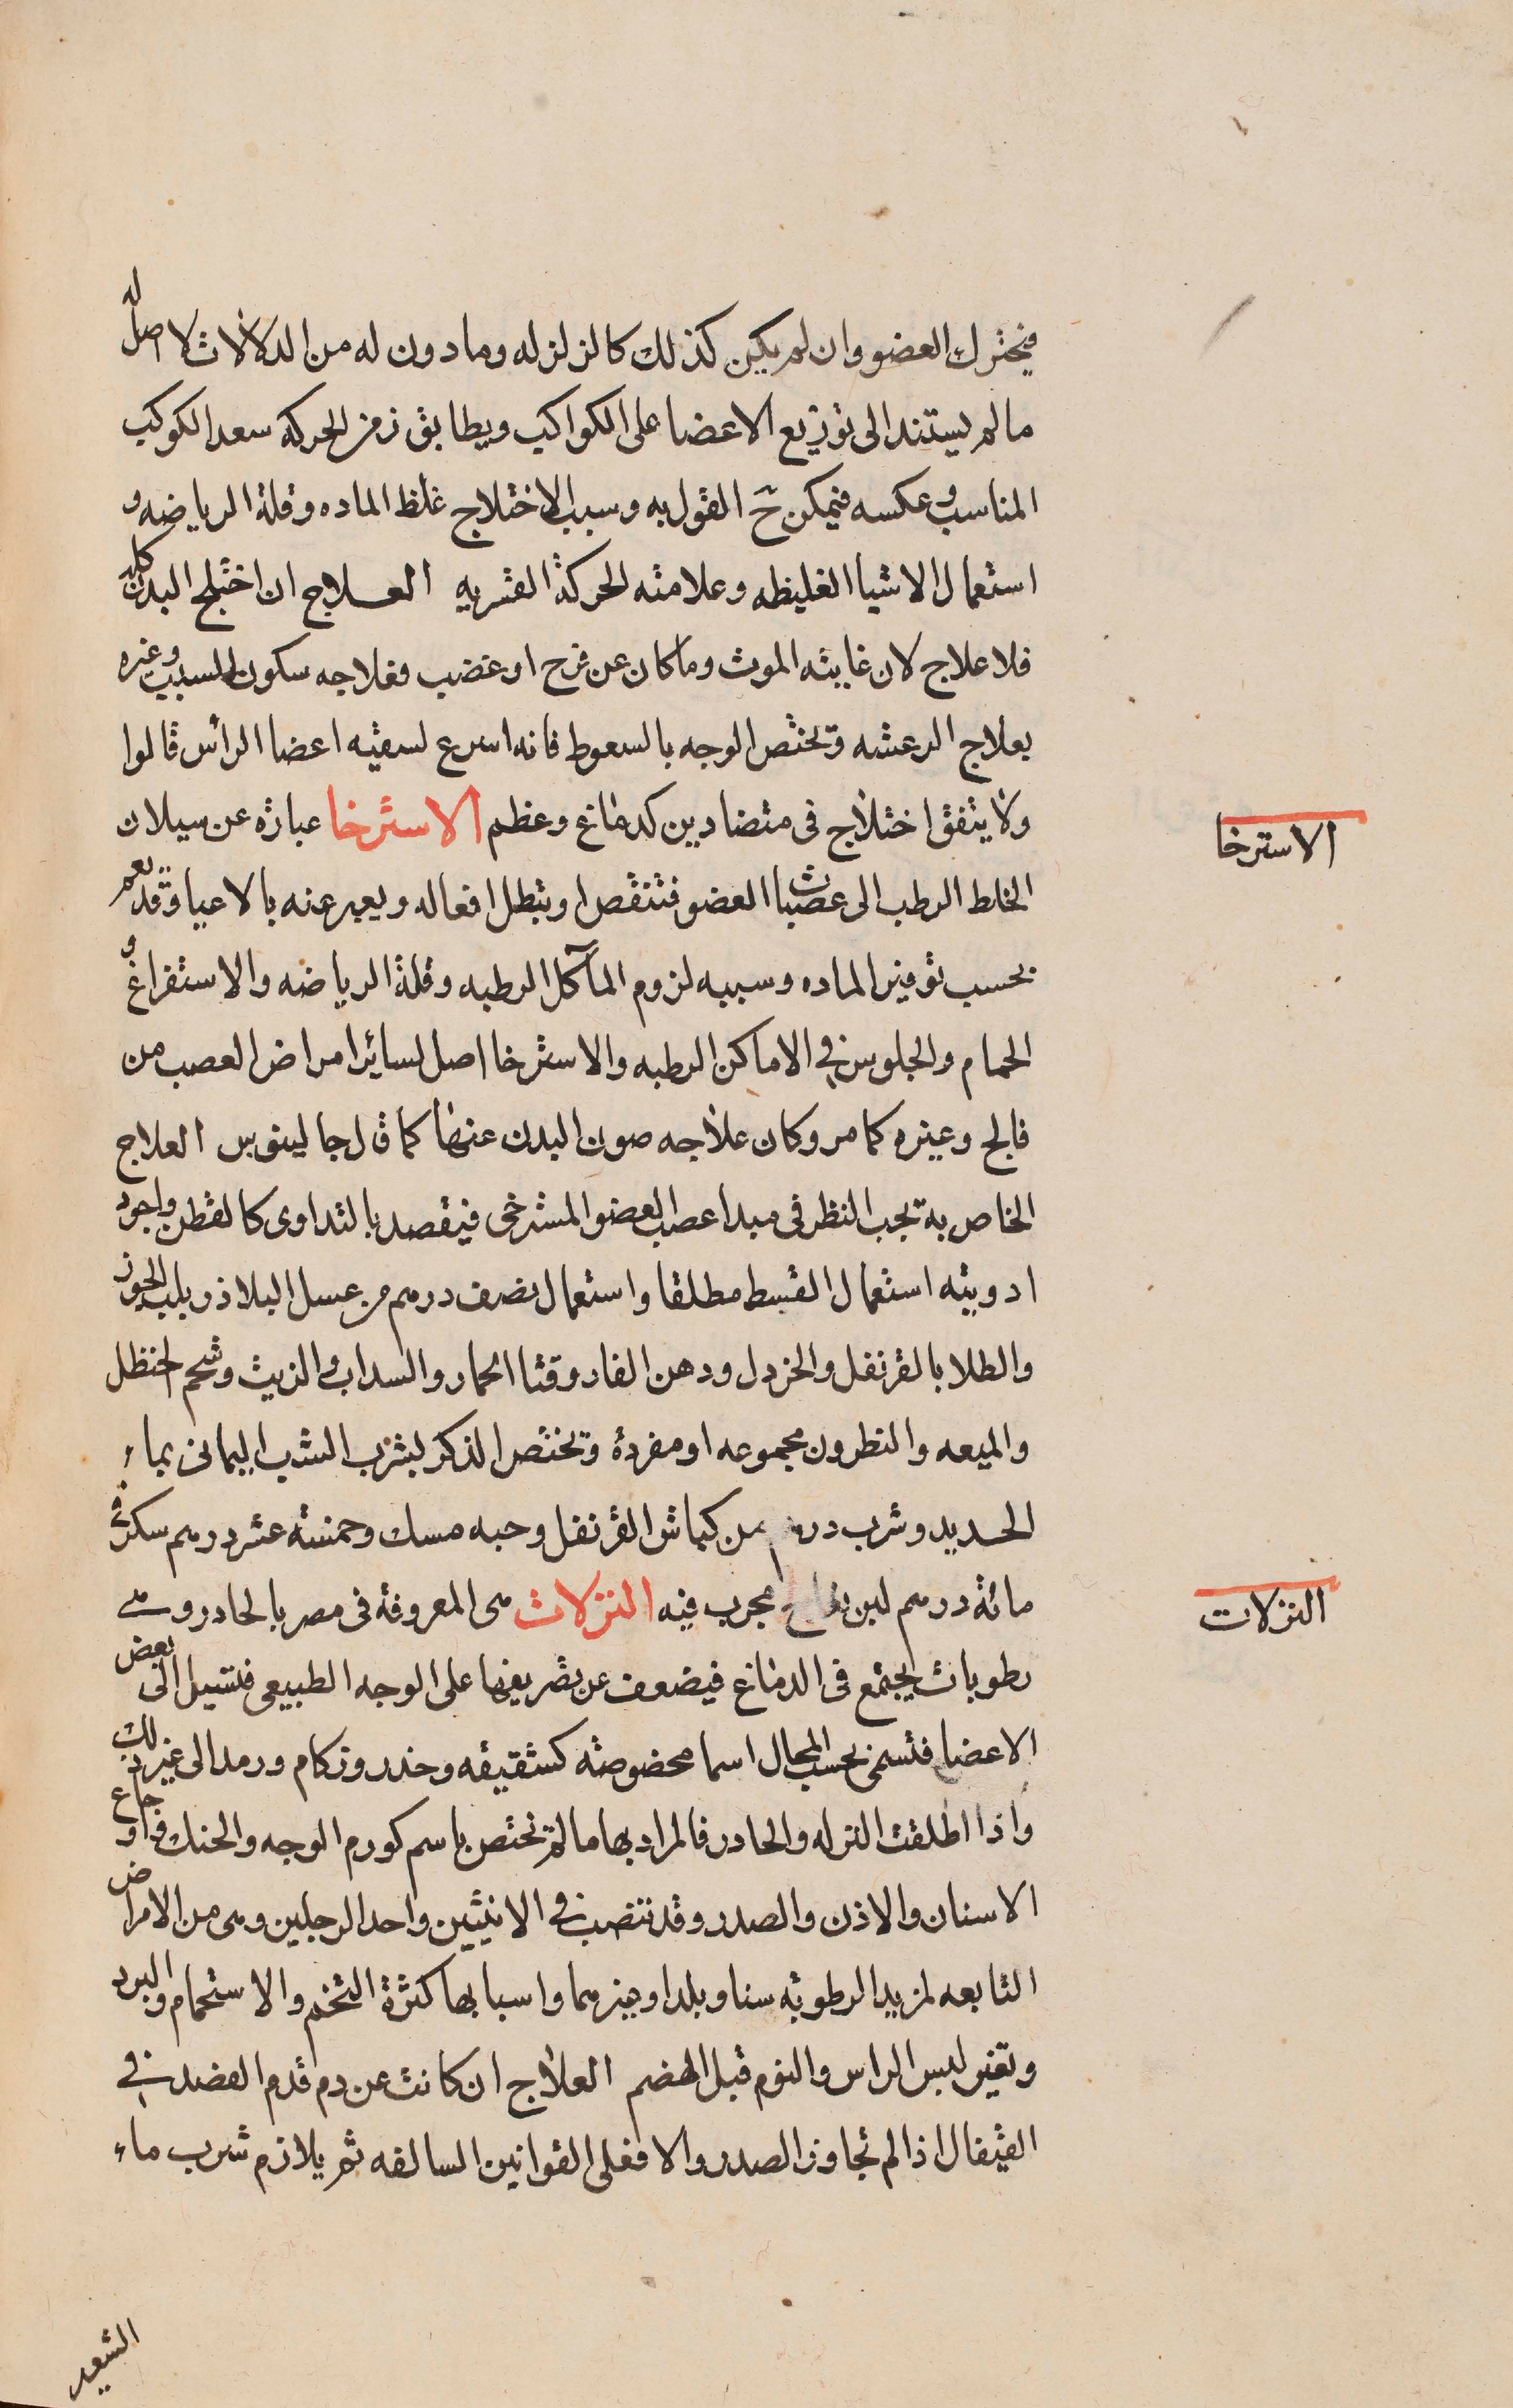 فيحترك العضو وان لم يكن كذلك كالزلزله وما دون له من الدلالات لا اصل له
ما لم يستند الى توزيع الاعضا على الكواكب ويطابق زمن الحركه سعد الكوكب
المناسب وعكسه فيمكن ح القول به وسبب الاختلاج غلظ الماده وقلة الرياضه و
استعمال الاشيا الغليظه وعلامته الحركة القسريه العلاج ان اختلج البدن كله
فلا علاج لان غايته الموت وما كان عن فرح او غضب فعلاجه سكون السبب وغيره
بعلاج الرعشه ويختص الوجه بالسعوط فانه اسرع لسقيه اعضا الرأس قالوا
ولا يتفق اختلاج فى متضادين كدماغ وعظم الاسترخا عبارة عن سيلان
الاسترخا
الخلط الرطب الى عصبات العضو فتنقص او تبطل افعاله ويعبر عنه بالاعيا وقد يعم
بحسب توفير الماده وسببه لزوم المآكل الرطبه وقلة الرياضه والاستفراغ و
الحمام والجلوس فى الاماكن الرطبه والاسترخا اصل لسائر امراض العصب من
فالج وغيره كما مر وكان علاجه صون البدن عنها كما قال جالينوس العلاج
الخاص به يجب النظر فى مبدا عصب العضو المسترخى فيقصد بالتداوى كالقطن واجود
ادويته استعمال القسط مطلقا واستعمال نصف درهم من عسل البلاذر بلب الجوز
والطلا بالقرنفل والخردل ودهن الغار وقثا الحمار والسداب والزيت وشحم الحنظل
والميعه والنطرون مجموعه او مفردة ويختص الذكر بشرب الشب اليمانى بماء
الحديد وشرب درهم من كباش القرنفل وحبه مسك وخمسة عشر درهم سكر فى
مائة درهم لبن مجرب فيه النزلات هى المعروفة فى مصر بالحادر وهى
النزلات
رطوبات تجتمع فى الدماغ فيضعف عن تصريفها على الوجه الطبيعى فتسيل الى بعض
الاعضا فتسمى بحسب المحال اسما مخصوصة كشقيقه وخدر وزكام ورمد الى غير ذلك
واذا اطلقت النزله والحادر فالمراد بها ما لم تختص باسم كورم الوجه والحنك واوجاع
الاسنان والاذن والصدر وقد تنصب فى الانثيين واحد الرجلين وهى من الامراض
التابعه لمزيد الرطوبة سنا وبلدا وغيرهما واسبابها كثرة التخم والاستحمام والبرد
وتغير لبس الراس والنوم قبل الهضم العلاج ان كانت عن دم قدم الفصد فى
القيفال اذا لم تجاوز الصدر والا فعلى القوانين السالفه ثم يلازم شرب ماء
الشعير